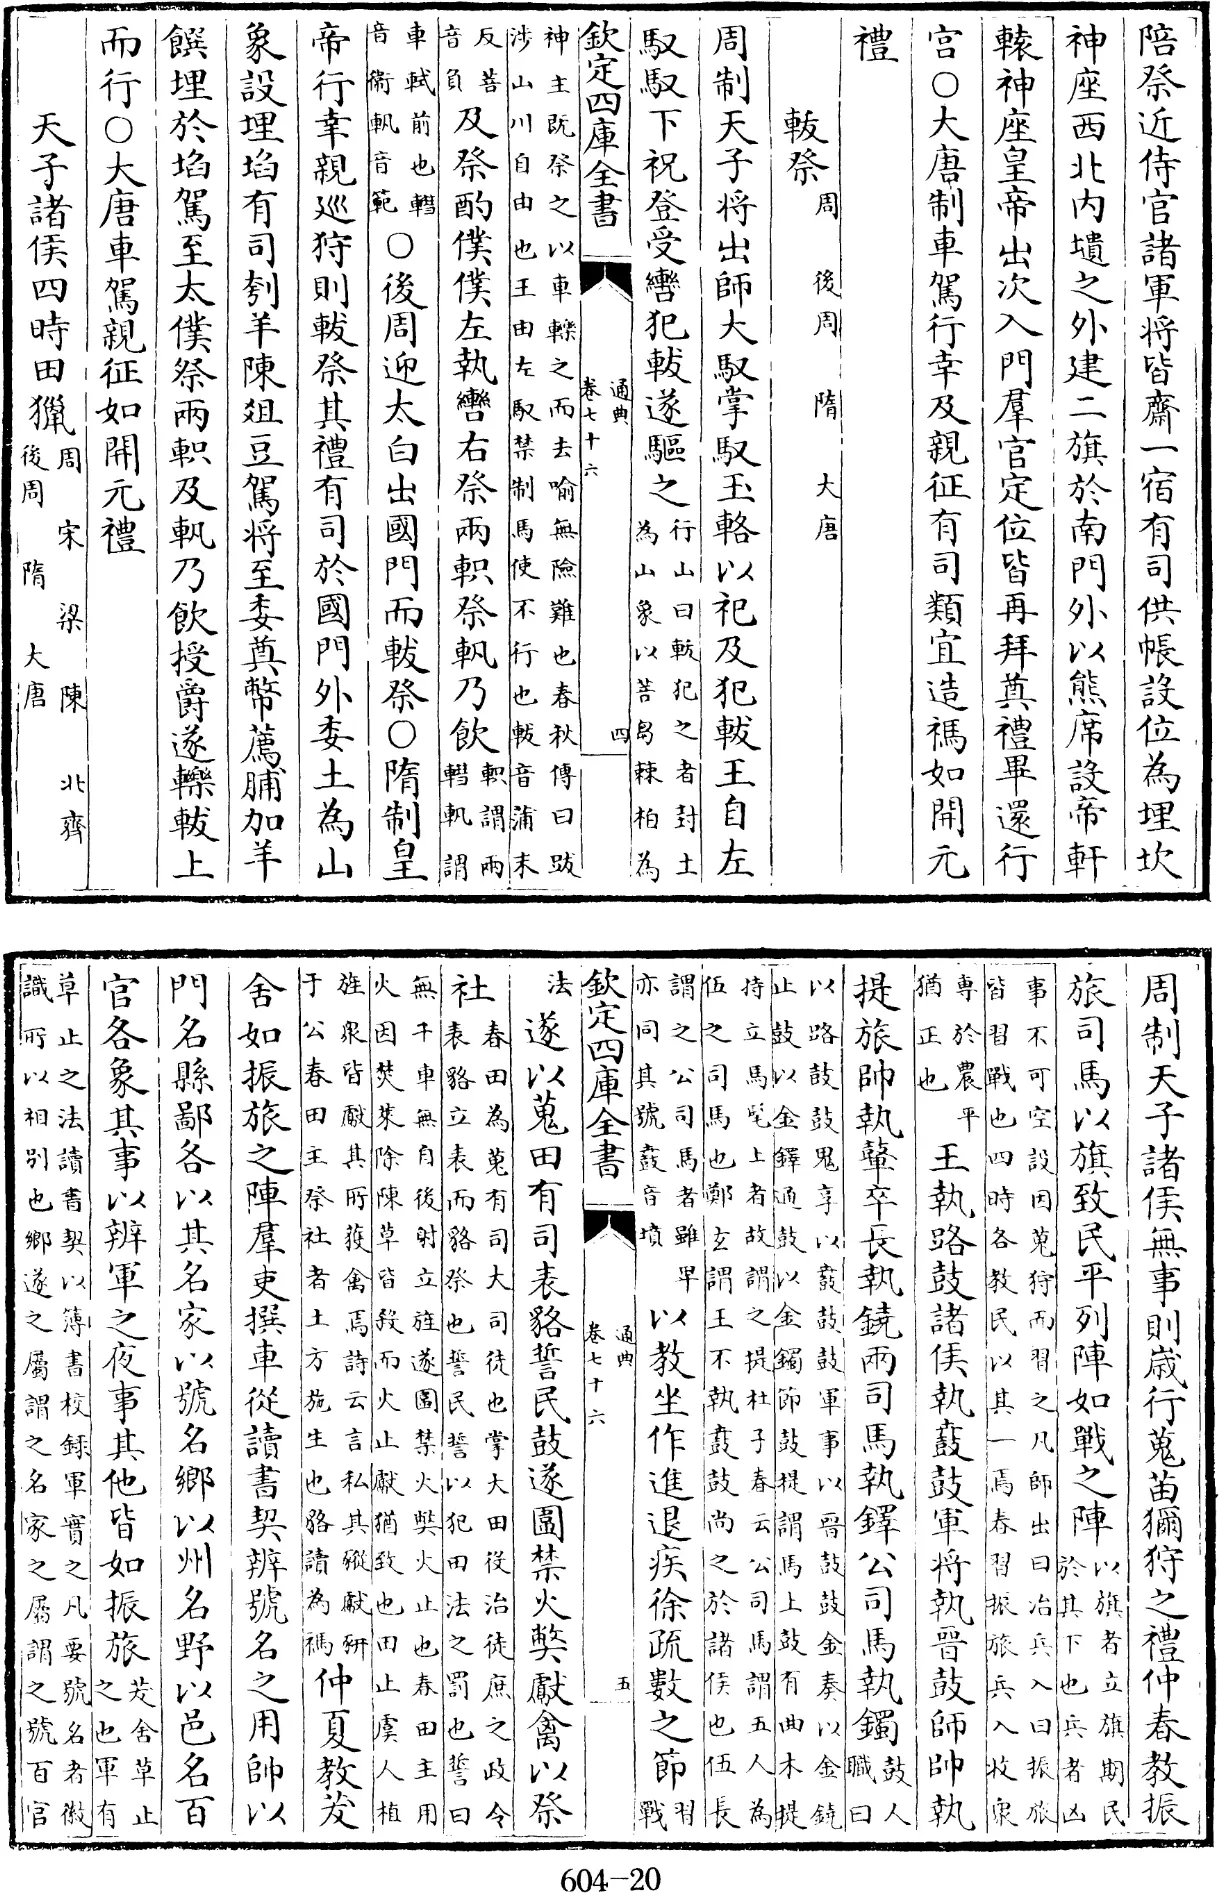 陪祭近侍官諸軍将皆齋一宿有司供帳設位為埋坎
神座西北内壝之外建二旗於南門外以熊席設帝軒
轅神座皇帝出次入門羣官定位皆再拜奠禮畢還行
宫○大唐制車駕行幸及親征有司類宜造禡如開元
禮
軷祭周 後周 隋 大唐
周制天子将出師大馭掌馭玉輅以祀及犯軷王自左
馭馭下祝登受轡犯軷遂驅之行山曰軷犯之者封土為山象以菩芻棘柏為
欽定四庫全書 通典 卷七十六 四
神主既祭之以車轢之而去喻無險難也春秋傳曰跋涉山川自由也王由左馭禁制馬使不行也軷音蒲末
反菩音負及祭酌僕僕左執轡右祭兩軹祭軓乃飲軹謂兩轊軓謂
車軾前也轊音衞軓音範○後周迎太白出國門而軷祭○隋制皇
帝行幸親巡狩則軷祭其禮有司於國門外委土為山
象設埋埳有司刳羊陳爼豆駕将至委奠幣薦脯加羊
饌埋於埳駕至太僕祭兩軹及軓乃飲授爵遂轢軷上
而行○大唐車駕親征如開元禮
天子諸侯四時田獵周 宋 梁 陳 北齊 後周 隋 大唐
周制天子諸侯無事則歳行蒐苗獮狩之禮仲春教振
旅司馬以旗致民平列陣如戰之陣以旗者立旗期民於其下也兵者凶
事不可空設因蒐狩而習之凡師出曰冶兵入曰振旅皆習戰也四時各教民以其一焉春習振旅兵入收衆
專於農平猶正也王執路鼓諸侯執鼖鼓軍将執晋鼓師帥執
提旅帥執鼙卒長執鐃兩司馬執鐸公司馬執鐲鼓人職曰
以路鼓鼓鬼享以鼖鼓鼓軍事以晋鼓鼓金奏以金鐃止鼓以金鐸通鼓以金鐲節鼓提謂馬上鼓有曲木提
持立馬髦上者故謂之提杜子春云公司馬謂五人為伍之司馬也鄭玄謂王不執鼖鼓尚之於諸侯也伍長
謂之公司馬者雖畀亦同其號鼖音墳以教坐作進退疾徐疏數之節習戰
欽定四庫全書 通典 卷七十六 五
法遂以蒐田有司表貉誓民鼓遂圍禁火弊獻禽以祭
社春田為蒐有司大司徒也掌大田役治徒庶之政令表貉立表而貉祭也誓民誓以犯田法之罰也誓曰
無干車無自後射立旌遂圍禁火弊火止也春田主用火因焚萊除陳草皆殺而火止獻猶致也田止虞人植
旌衆皆獻其所獲禽焉詩云言私其豵獻豜于公春田主祭社者土方施生也貉讀為禡仲夏教茇
舍如振旅之陣羣吏撰車從讀書契辨號名之用帥以
門名縣鄙各以其名家以號名鄉以州名野以邑名百
官各象其事以辨軍之夜事其他皆如振旅茇舍草止之也軍有
草止之法讀書契以簿書校録軍實之凡要號名者徽識所以相别也鄉遂之屬謂之名家之屬謂之號百官
604-20